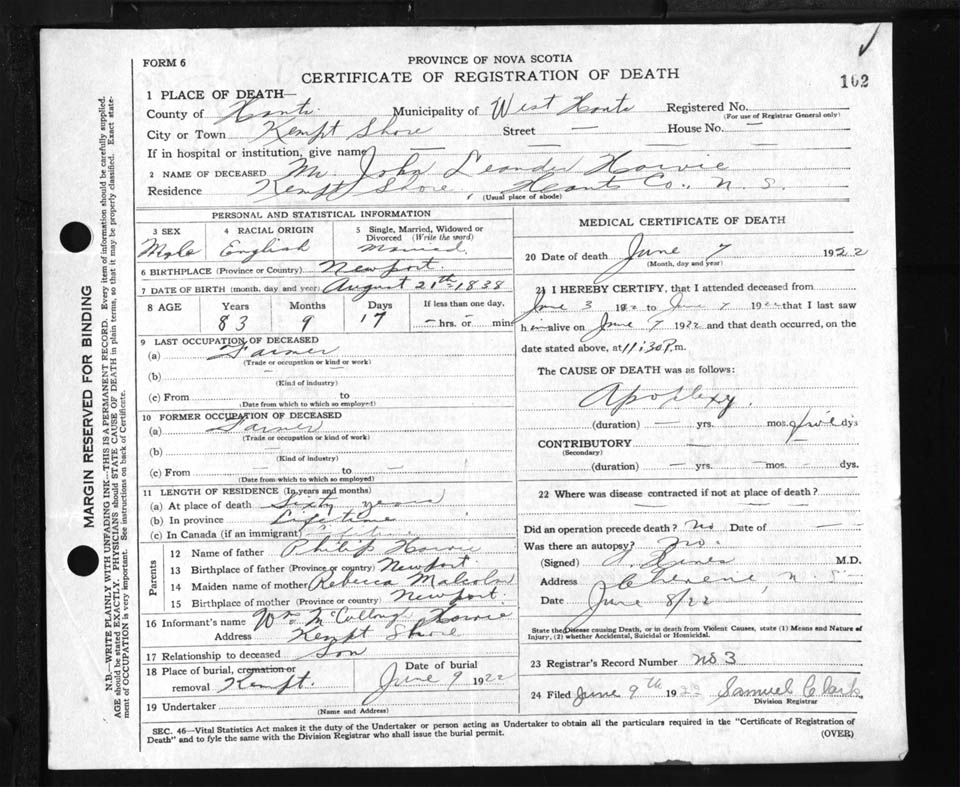 FORM 6
PROVINCE OF NOVA SCOTIA
CERTIFICATE OF REGISTRATION OF DEATH
102
1 PLACE OF DEATH—
County of Hants Municipality of West Hants Registered No.
(For use of Registrar General only)
City or Town Kempt Shore Street — House No. —
If in hospital or institution, give name — — — —
2 NAME OF DECEASED Mr John Leander Harvie
Residence Kempt Shore, Hants Co., N. S.
(Usual place of abode)
PERSONAL AND STATISTICAL INFORMATION
3 SEX 4 RACIAL ORIGIN 5 Single, Married, Widowed or Divorced (Write the word)
Male English Married
6 BIRTHPLACE (Province or Country) Newport.
7 DATE OF BIRTH (month, day and year) August 21th 1838
8 AGE Years Months Days If less than one day,
83 9 17 — hrs. or — min
9 LAST OCCUPATION OF DECEASED
(a) Farmer
(Trade or occupation or kind or work)
(b) —
(Kind of industry)
(c) From to
(Date from which to which so employed)
10 FORMER OCCUPATION OF DECEASED
(a) Farmer
(Trade or occupation or kind of work)
(b) —
(Kind of industry)
(c) From — to —
(Date from which to which so employed)
11 LENGTH OF RESIDENCE (In years and months)
(a) At place of death Sixty years
(b) In province Lifetime
(c) In Canada (if an immigrant)
Parents
12 Name of father Philip Harvie
13 Birthplace of father (Province or country) Newport.
14 Maiden name of mother Rebecca Malcolm
15 Birthplace of mother (Province or country) Newport.
16 Informant's name Wm McCullough Harvie
Address Kempt Shore
17 Relationship to deceased Son
18 Place of burial, cremation or removal Kempt. Date of burial June 9 1922
19 Undertaker
(Name and Address)
MEDICAL CERTIFICATE OF DEATH
20 Date of death June 7 1922
(Month, day and year)
21 I HEREBY CERTIFY, that I attended deceased from
June 3 1922 to June 7 1922 that I last saw
h im alive on June 7 1922 and that death occurred, on the
date stated above, at 11:30 P.m.
The CAUSE OF DEATH was as follows:
Apoplexy.
(duration) — yrs. mos. five dys
CONTRIBUTORY — —
(Secondary)
(duration) — yrs. — mos. — dys.
22 Where was disease contracted if not at place of death?
—
Did an operation precede death? No Date of — —
Was there an autopsy? No.
(Signed) M.D.
Address N. S.
Date June 8/22
State the Disease causing Death, or in death from Violent Causes, state (1) Means and Nature of Injury, (2) whether Accidental, Suicidal or Homicidal.
23 Registrar's Record Number No 3
24 Filed June 9th 1922 Samuel Clark
Division Registrar
SEC. 46—Vital Statistics Act makes it the duty of the Undertaker or person acting as Undertaker to obtain all the particulars required in the "Certificate of Registration of
Death" and to fyle the same with the Division Registrar who shall issue the burial permit.
(OVER)
MARGIN RESERVED FOR BINDING
N.B.—WRITE PLAINLY WITH UNFADING INK—THIS IS A PERMANENT RECORD. Every item of information should be carefully supplied.
AGE should be stated EXACTLY. PHYSICIANS should STATE CAUSE OF DEATH in plain terms, so that it may be properly classified. Exact statement of OCCUPATION is very important. See instructions on back of Certificate.